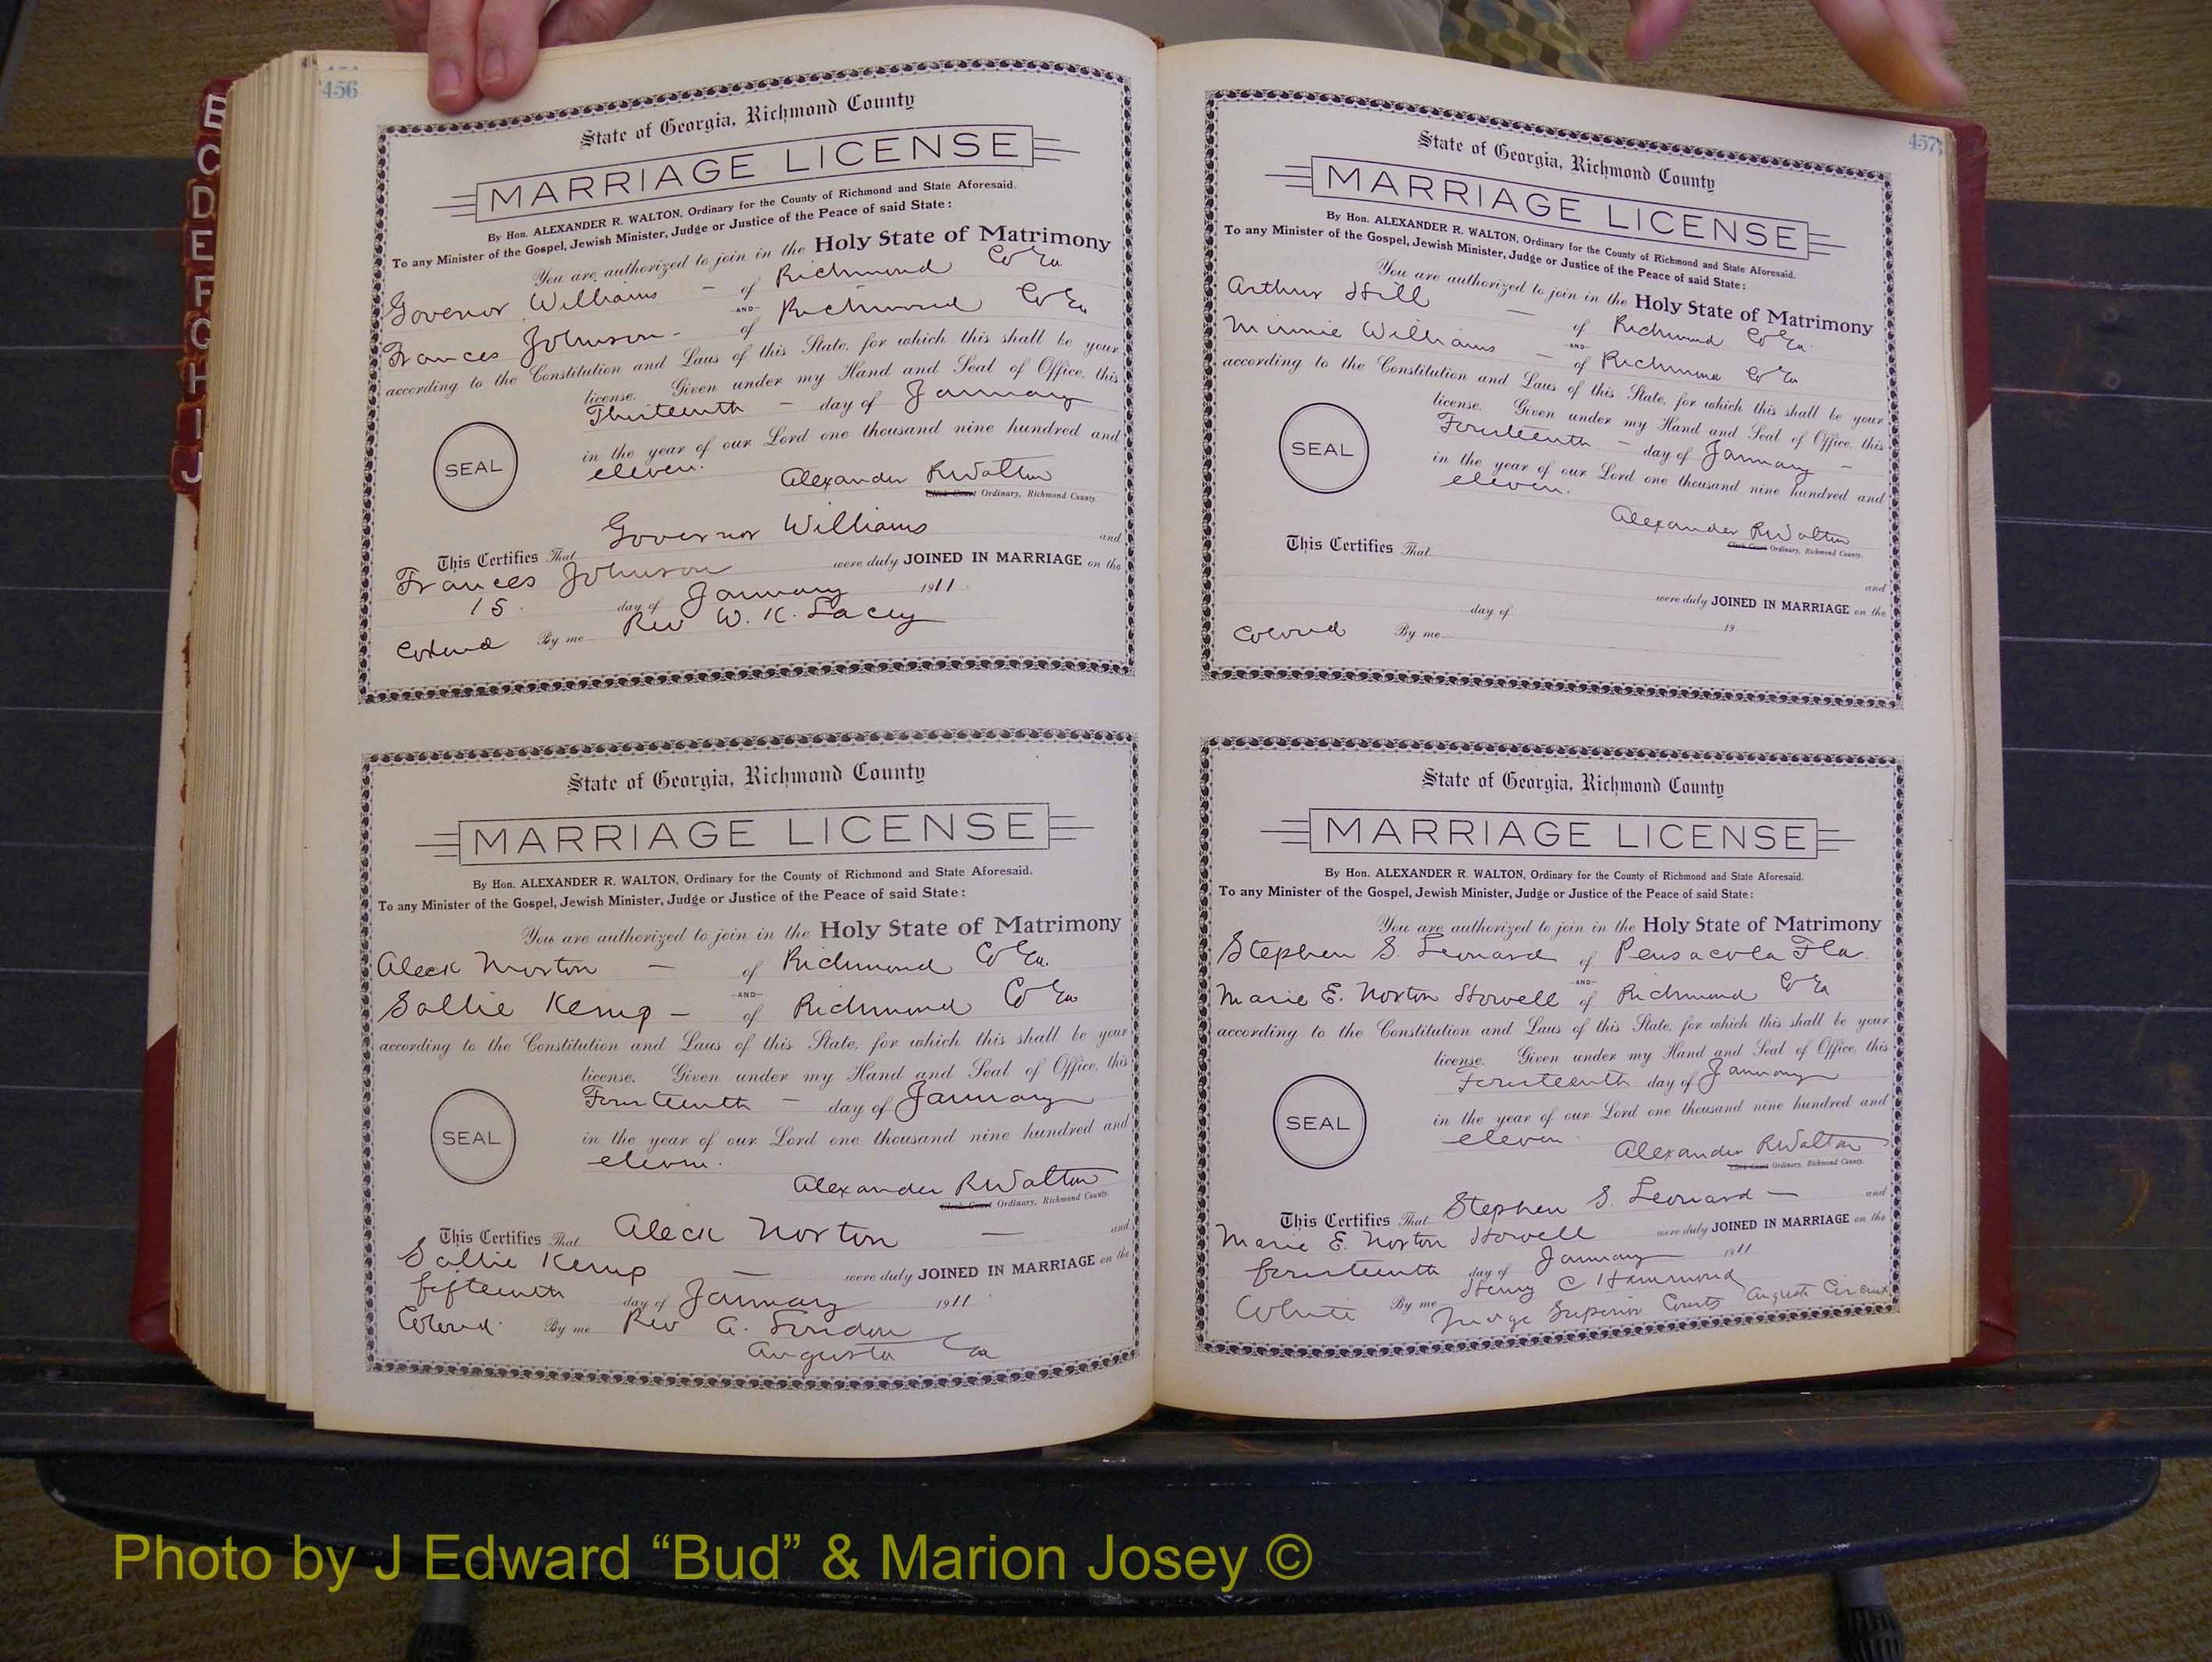 B
C
D
E
F
G
H
I
J
456
State of Georgia, Richmond County
MARRIAGE LICENSE
By Hon. ALEXANDER R. WALTON, Ordinary for the County of Richmond and State Aforesaid.
To any Minister of the Gospel, Jewish Minister, Judge or Justice of the Peace of said State:
You are authorized to join in the Holy State of Matrimony
Governor Williams – of Richmond Co Ga
AND
Frances Johnson - of Richmond Co Ga
according to the Constitution and Laws of this State, for which this shall be your
license. Given under my Hand and Seal of Office, this
Thirteenth – day of January
SEAL
in the year of our Lord one thousand nine hundred and
eleven.
Alexander R Walton
Clerk Court Ordinary, Richmond County
This Certifies That Governor Williams and
Frances Johnson were duly JOINED IN MARRIAGE on the
15. day of January 1911.
Colored By me Rev W. K. Lacey
State of Georgia, Richmond County
MARRIAGE LICENSE
By Hon. ALEXANDER R. WALTON, Ordinary for the County of Richmond and State Aforesaid.
To any Minister of the Gospel, Jewish Minister, Judge or Justice of the Peace of said State:
You are authorized to join in the Holy State of Matrimony
Aleck Norton – of Richmond Co Ga.
AND
Sallie Kemp – of Richmond Co Ga
according to the Constitution and Laws of this State, for which this shall be your
license. Given under my Hand and Seal of Office, this
Fourteenth – day of January
SEAL
in the year of our Lord one thousand nine hundred and
eleven.
Alexander R Walton
Clerk Court Ordinary, Richmond County
This Certifies That Aleck Norton – and
Sallie Kemp – were duly JOINED IN MARRIAGE on the
fifteenth day of January 1911
Colored. By me Rev G.
Augusta Ga
457
State of Georgia, Richmond County
MARRIAGE LICENSE
By Hon. ALEXANDER R. WALTON, Ordinary for the County of Richmond and State Aforesaid.
To any Minister of the Gospel, Jewish Minister, Judge or Justice of the Peace of said State:
You are authorized to join in the Holy State of Matrimony
Arthur Hill – of Richmond Co Ga
AND
Minnie Williams – of Richmond Co Ga
according to the Constitution and Laws of this State, for which this shall be your
license. Given under my Hand and Seal of Office, this
Fourteenth – day of January –
SEAL
in the year of our Lord one thousand nine hundred and
eleven.
Alexander R Walton
Clerk Court Ordinary, Richmond County.
This Certifies That
and
were duly JOINED IN MARRIAGE on the
day of 19
Colored By me
State of Georgia, Richmond County
MARRIAGE LICENSE
By Hon. ALEXANDER R. WALTON, Ordinary for the County of Richmond and State Aforesaid.
To any Minister of the Gospel, Jewish Minister, Judge or Justice of the Peace of said State:
You are authorized to join in the Holy State of Matrimony
Stephen S. Leonard of Pensacola Fla.
AND
Marie E. Norton Howell of Richmond Co Ga
according to the Constitution and Laws of this State, for which this shall be your
license. Given under my Hand and Seal of Office, this
Fourteenth day of January
SEAL
in the year of our Lord one thousand nine hundred and
eleven.
Alexander R Walton
Clerk Court Ordinary, Richmond County.
This Certifies That Stephen S. Leonard – and
Marie E. Norton Howell were duly JOINED IN MARRIAGE on the
fourteenth day of January 1911
White By me Henry C Hammond
Judge Superior Courts Augusta Circuit
Photo by J Edward “Bud” & Marion Josey ©